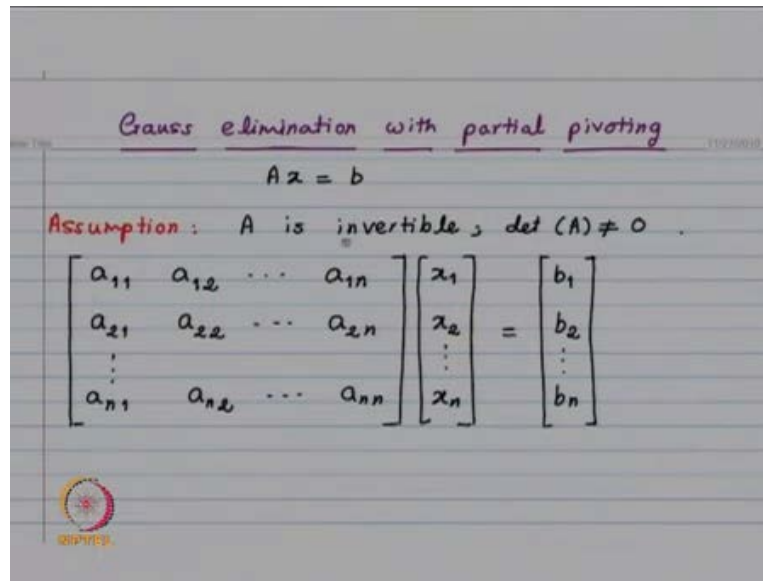 Gauss elimination with partial pivoting
Ax = b
Assumption : A is invertible ; det (A) ≠ 0 .
[ a11 a12 ... a1n ] [ x1 ] = [ b1 ]
[ a21 a22 ... a2n ] [ x2 ] [ b2 ]
[ ⋮ ] [ ⋮ ] [ ⋮ ]
[ an1 an2 ... ann ] [ xn ] [ bn ]
NPTEL